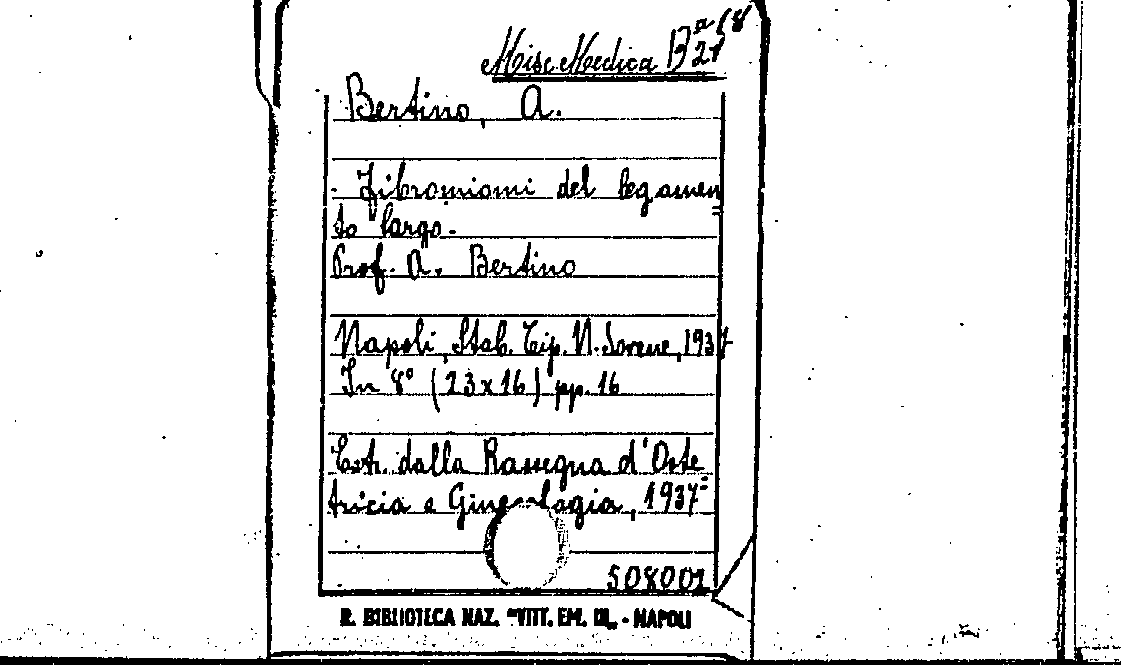 Misc. Medica Bª 27 / 68
Bertino, A.
- Fibromiomi del legamen=
to largo.-
Prof. A. Bertino
Napoli, Stab. Tip. N. Jovene, 1937
In 8° (23x16) pp. 16
Estr. dalla Rassegna d'Oste=
tricia e Ginecologia, 1937
508001
R. BIBLIOTECA NAZ. "VITT. EM. III„ - NAPOLI